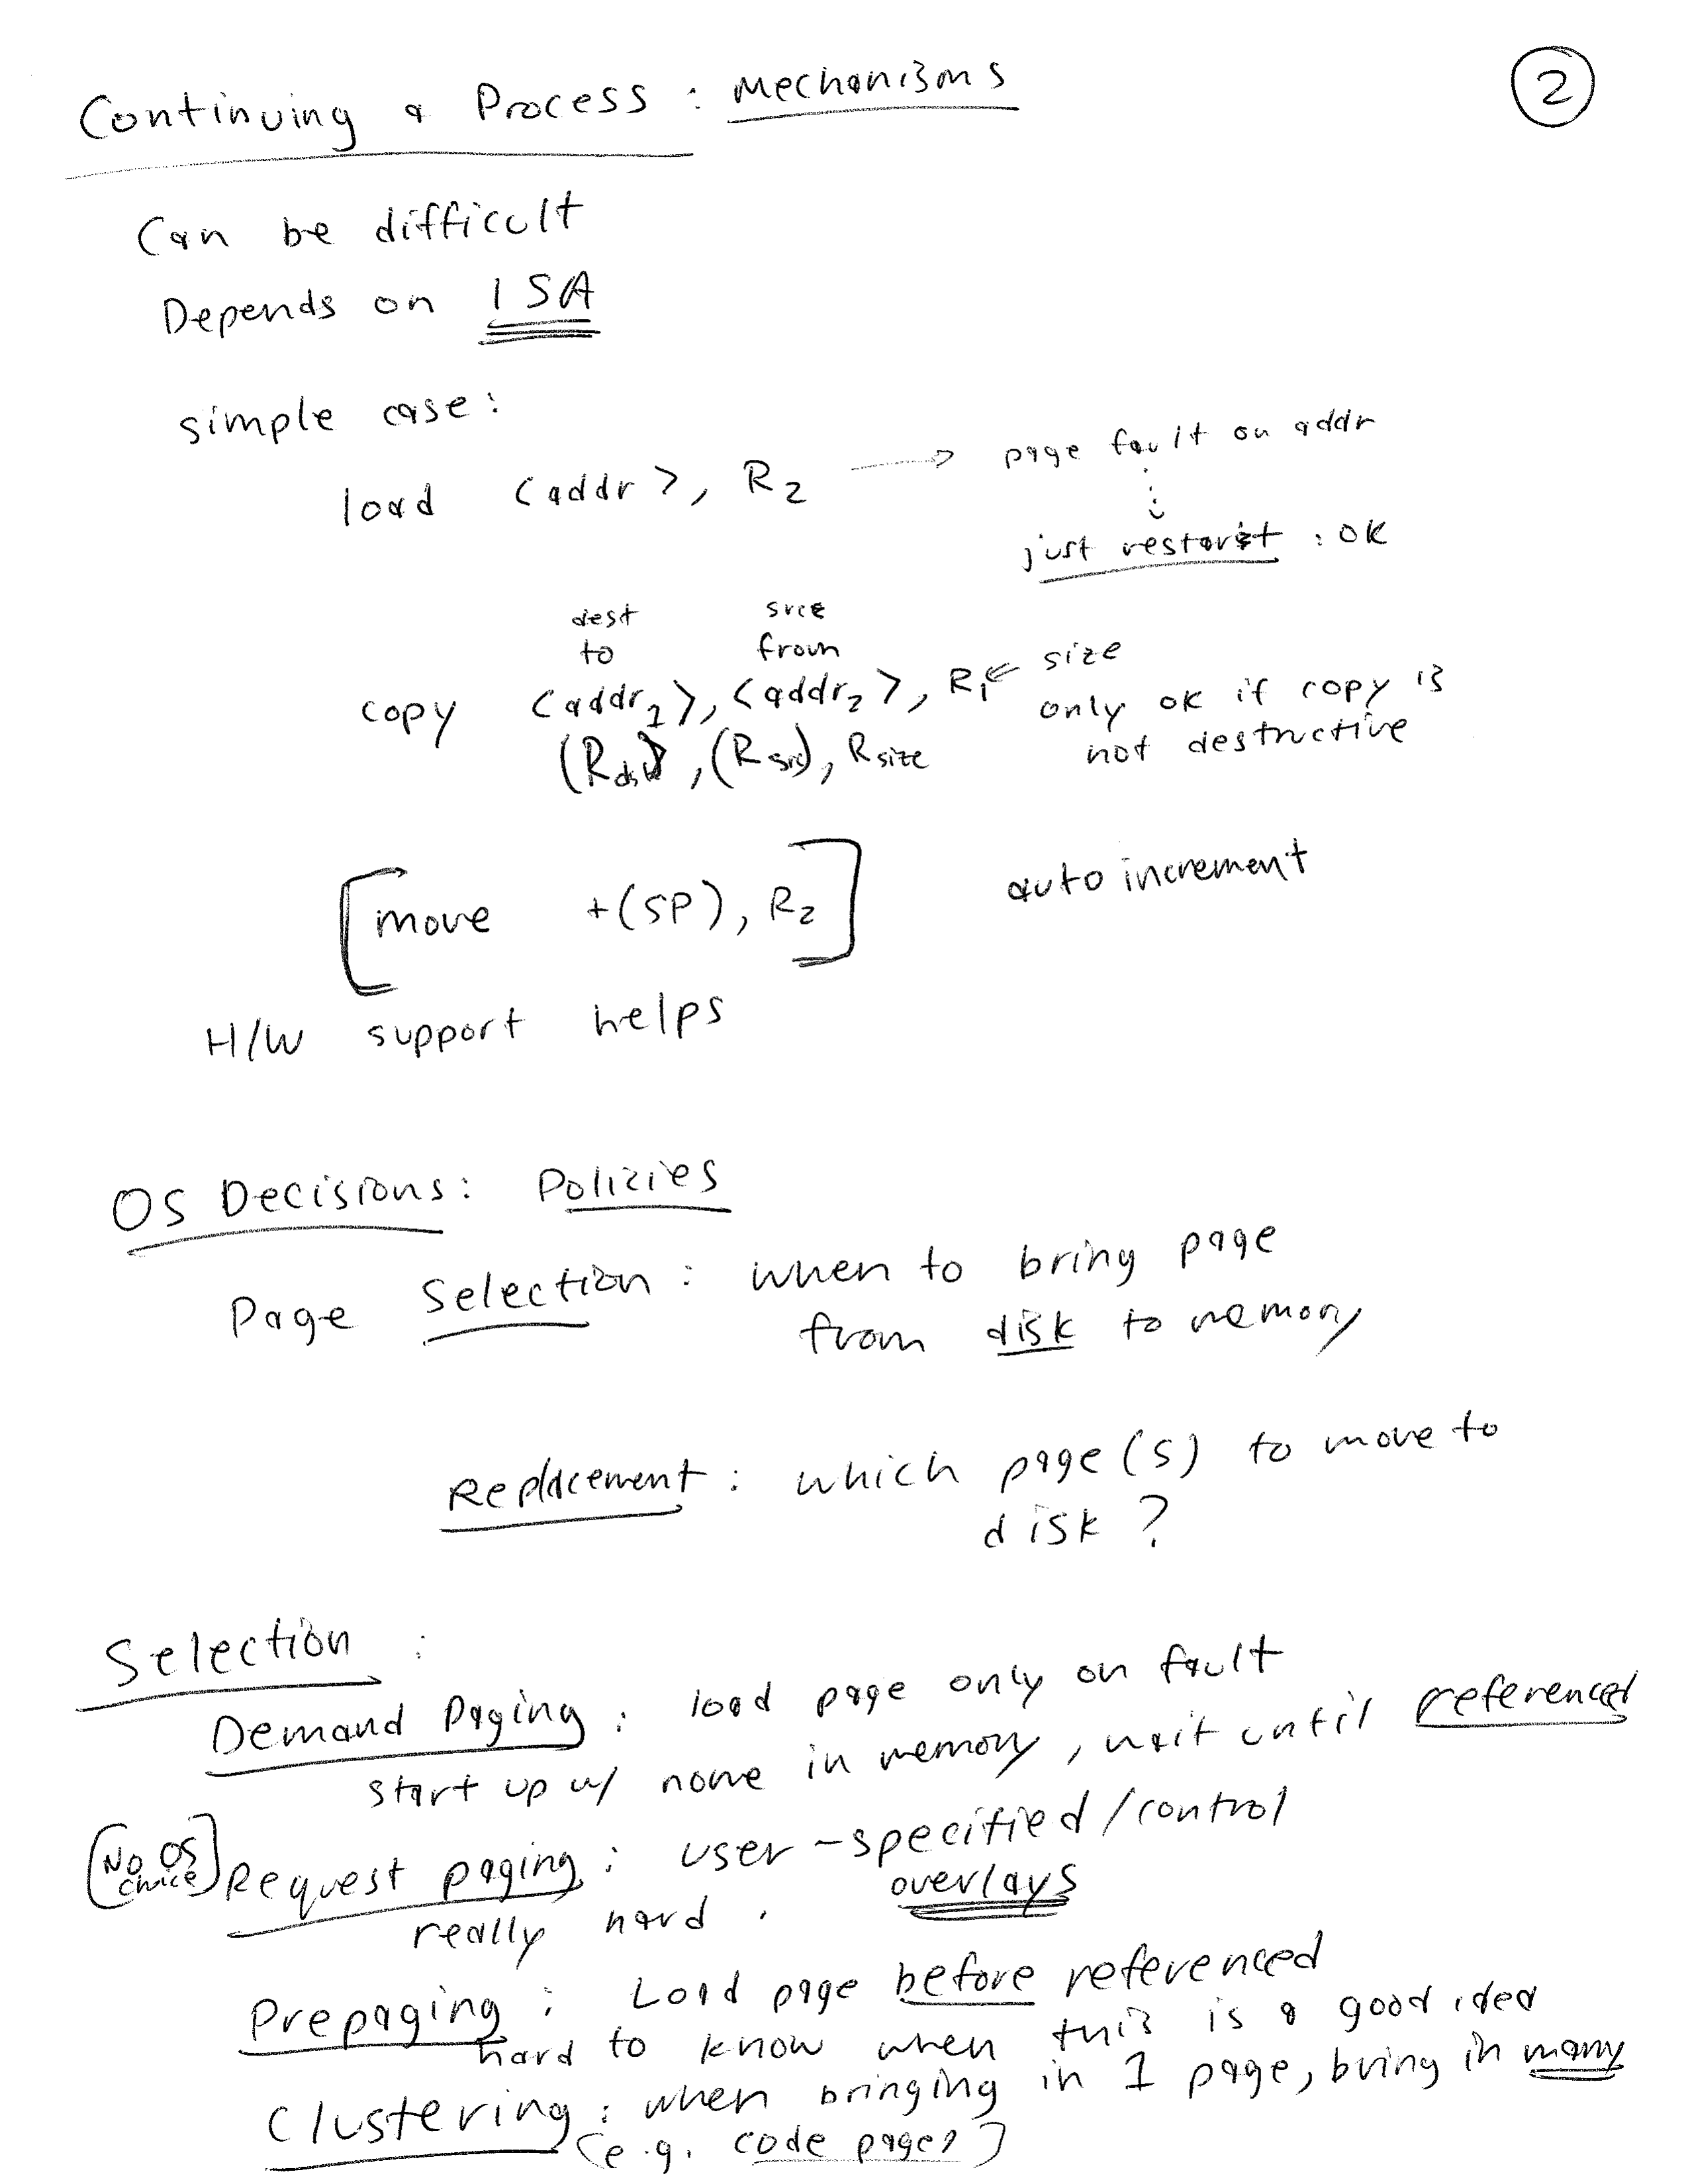 Continuing a Process : Mechanisms
2
Can be difficult
Depends on ISA
simple case:
load <addr>, R2 → page fault on addr
just restart : ok
dest srce
to from
copy <addr1>, <addr2>, R1 ← size
only ok if copy is
not destructive
(Rdst), (Rsrc), Rsize
move +(SP), R2
auto increment
H/W support helps
OS Decisions: Policies
Page Selection : when to bring page
from disk to memory
Replacement : which page(s) to move to
disk ?
Selection :
Demand Paging : load page only on fault
start up w/ none in memory, wait until referenced
[No OS choice]
Request paging : user-specified/control
really hard . overlays
Prepaging : Load page before referenced
hard to know when this is a good idea
Clustering : when bringing in 1 page, bring in many
(e.g. code pages)